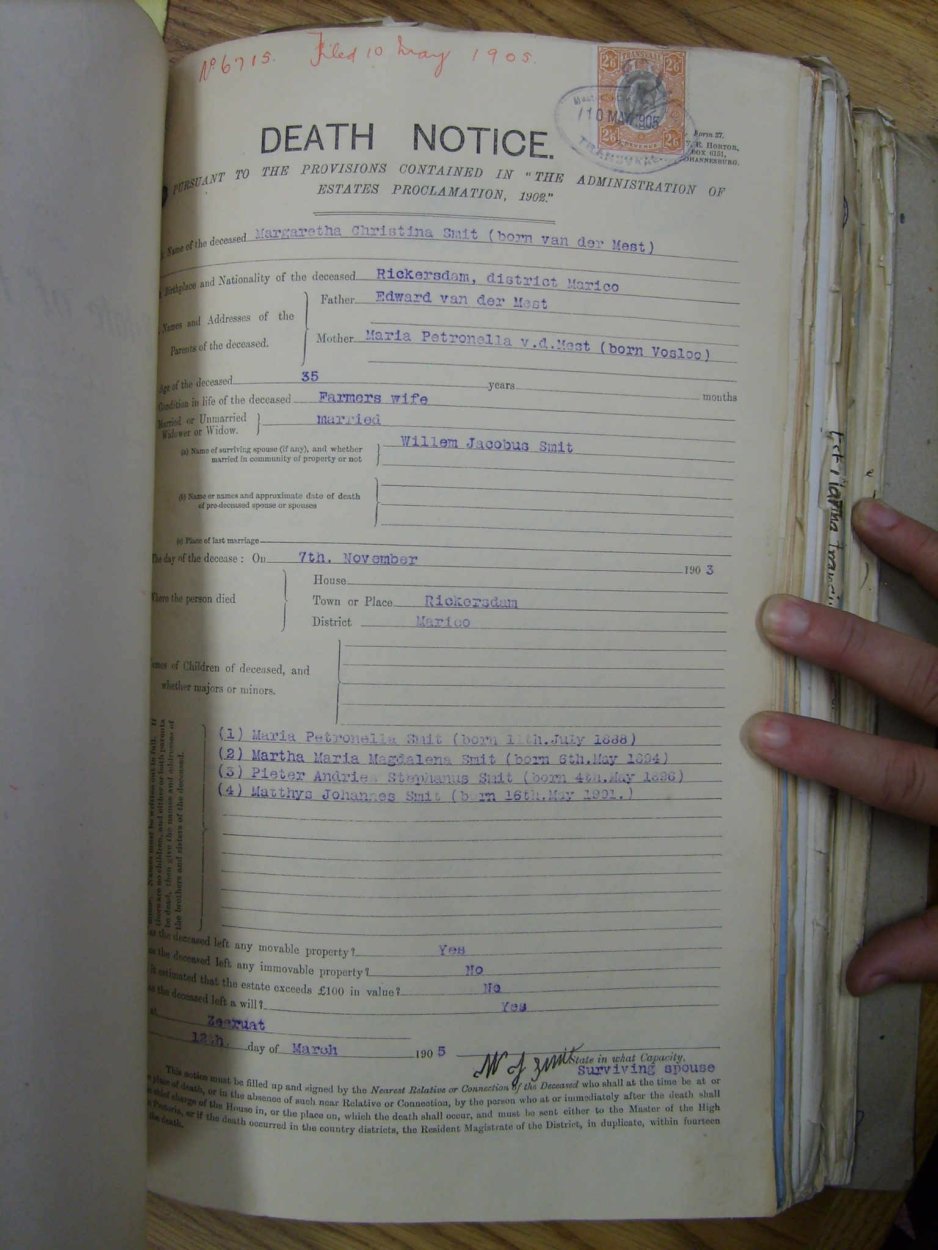 No 6715. Filed 10 May 1905.
TRANSVAAL
2/6 2/6
2/6 2/6
REVENUE
10 MAY 1905
TRANSVAAL
Form 27.
R. HORTON,
BOX 6151,
JOHANNESBURG.
DEATH NOTICE.
PURSUANT TO THE PROVISIONS CONTAINED IN "THE ADMINISTRATION OF
ESTATES PROCLAMATION, 1902."
Name of the deceased Margaretha Christina Smit (born van der Mest)
Birthplace and Nationality of the deceased Rickersdam, district Marico
Names and Addresses of the Parents of the deceased.
Father Edward van der Mest
Mother Maria Petronella v.d.Mest (born Vosloo)
Age of the deceased 35 years months
Condition in life of the deceased Farmers wife
Married or Unmarried married
Widower or Widow.
(a) Name of surviving spouse (if any), and whether Willem Jacobus Smit
married in community of property or not
(b) Name or names and approximate date of death
of pre-deceased spouse or spouses
(c) Place of last marriage
The day of the decease: On 7th. November 1903
House
Where the person died Town or Place Rickersdam
District Marico
Names of Children of deceased, and
whether majors or minors.
(1) Maria Petronella Smit (born 11th.July 1888)
(2) Martha Maria Magdalena Smit (born 6th.May 1894)
(3) Pieter Andries Stephanus Smit (born 4th.May 1896)
(4) Matthys Johannes Smit (born 16th.May 1901.)
there are no children, and either or both parents
be dead, then give the names and addresses of
the brothers and sisters of the deceased.
as the deceased left any movable property? Yes
as the deceased left any immovable property? No
it estimated that the estate exceeds £100 in value? No
as the deceased left a will? Yes
at Zeerust
12th. day of March 1905
W J Smit State in what Capacity.
Surviving spouse
This notice must be filled up and signed by the Nearest Relative or Connection of the Deceased who shall at the time be at or
place of death, or in the absence of such near Relative or Connection, by the person who at or immediately after the death shall
chief charge of the House in, or the place on, which the death shall occur, and must be sent either to the Master of the High
Pretoria, or if the death occurred in the country districts, the Resident Magistrate of the District, in duplicate, within fourteen
the death.